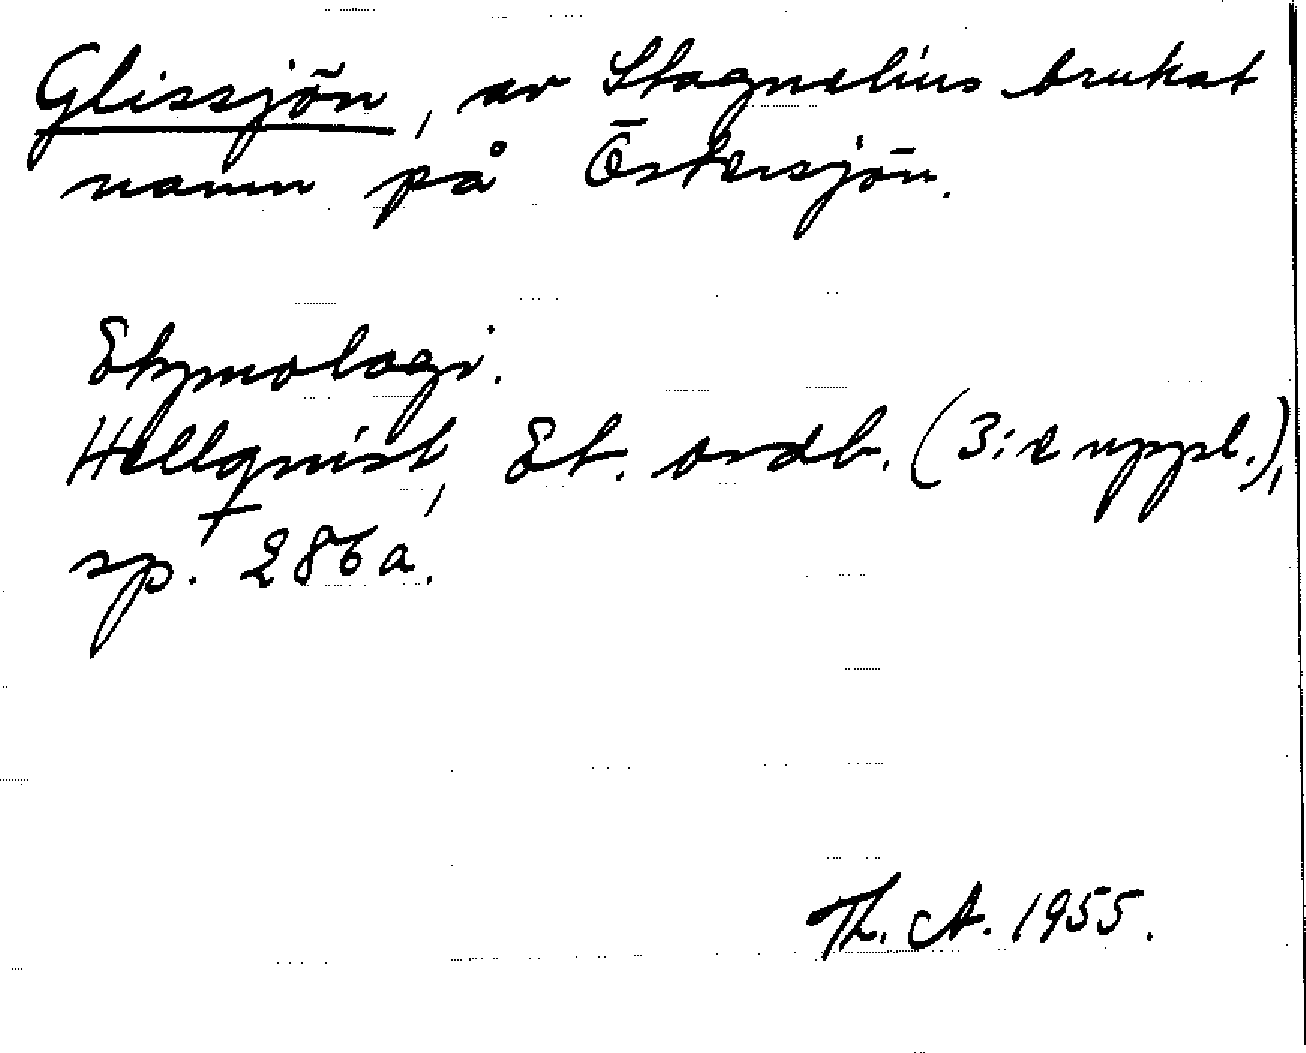 Glissjön, av Stagnelius brukat
namn på Östersjön.
Etymologi.
Hellquist, Et. ordb. (3:e uppl.),
sp. 286a.
Th. A. 1955.